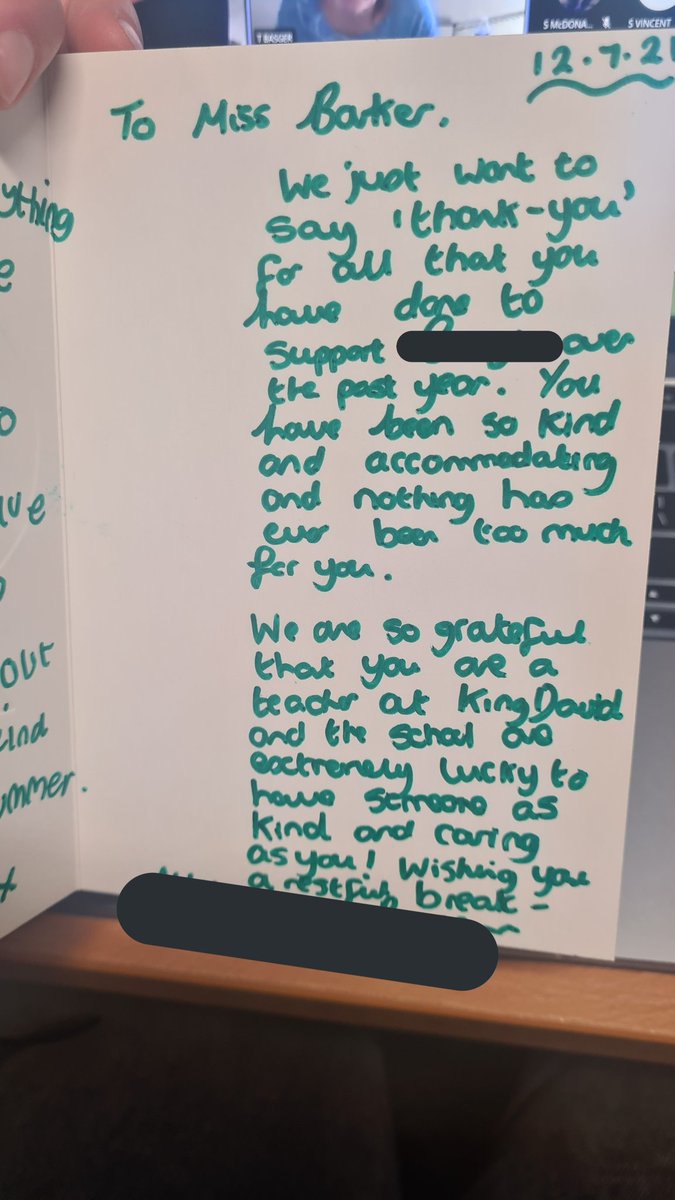 T BASGER
S McDONA...
S VINCENT
12.7.21
To Miss Barker.
We just want to
say 'thank-you'
for all that you
have done to
support over
the past year. You
have been so kind
and accommodating
and nothing has
ever been too much
for you.
We are so grateful
that you are a
teacher at King David
and the school are
extremely lucky to
have someone as
kind and caring
as you! Wishing you
a restful break -
ything
e
o
ave
out
kind
ummer.
x